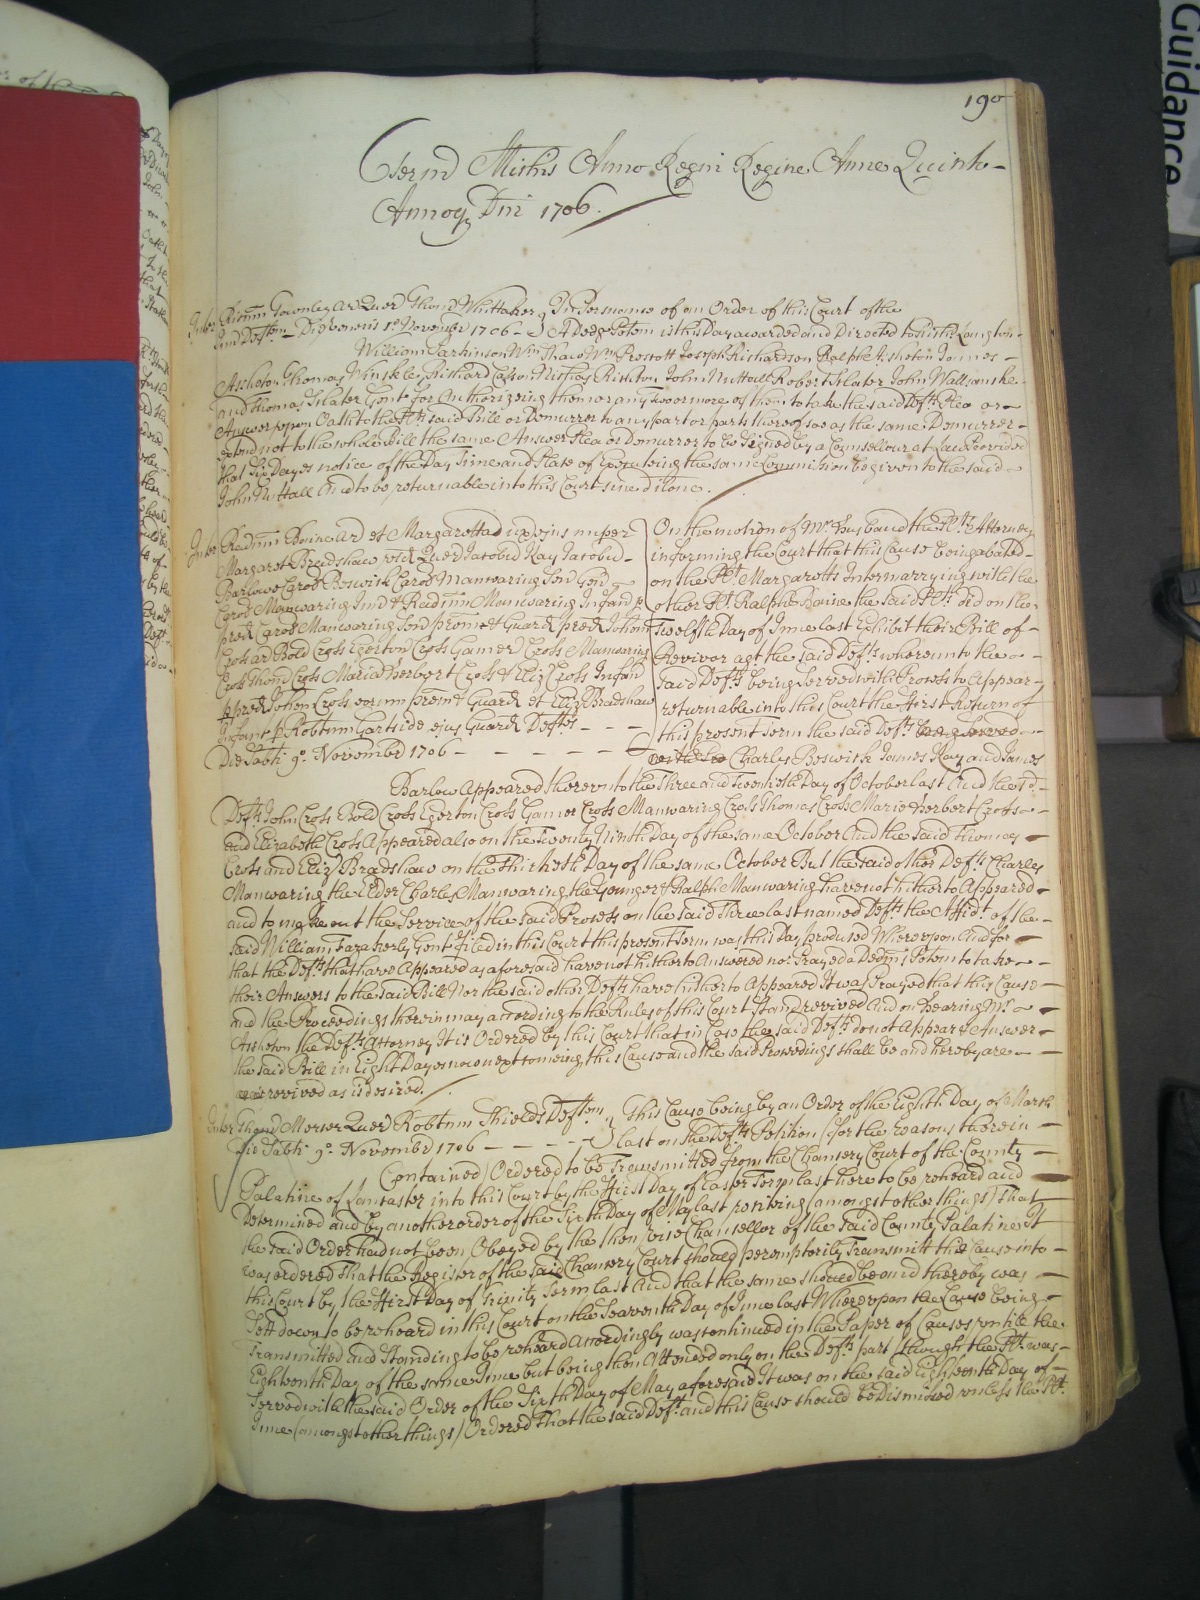 190
Termo Michis Anno Regni Regine Anne Quinto
Annoq Dni 1706.
Inter Ricum Townley Ar Quer Thom Whittaker In Persuance of an Order of this Court of the
Die Veneris 1o Novembr 1706 A Ded Potem is this Day awarded and Directed to
William Parkinson Wm Shaw Wm Prescott Joseph Richardson Ralph Assheton James
Assheton Thomas Winckley Richard Nicholas Rishton John Nuttall Robert Slater John
and Thomas Slater Gent for Authorizing them or any two or more of them to take the said Defts Plea or
Answer upon Oath to the Plts said Bill or Demurrer to any part or parts thereof soe as the same Demurrer
extend not to the whole Bill the same Answer Plea or Demurrer to be Signed by a Counsellour at Law Provided
that Six Dayes notice of the Day Time and Place of Executeing the same Commission be given to the said
John Nuttall And to be returnable into this Court sine dilone.
Inter Radum Boine Ar et Margarettad ux ejus nuper
Margaret Bradshaw vid Quer Jacobu Kay Jacobu
Barlowe Carod Beswick Carod Manwaring Sen Gen
Carod Manwaring Jun & Radum Manwaring Infan p
pred Carod Manwaring Sen proxim & Guard pred Johem
Cross ar Bold Cross Egerton Cross Gamer Cross Manwaring
Cross Thom Cross Maria Herbert Cross & Eliz Cross Infan
p pred Johem Cross eorum proxim & Guard et Eliz Bradshaw
Infant p Robtum Gartside ejus Guard Deftes
Die Sabti 9o Novembr 1706
On the motion of Mr Husband the Plts Attorney
informing the Court that this Cause being abated
on the Plt Margaretts Intermarrying with the
other Plt Ralph Boine the said Plts did on the
Twelfth Day of June last Exhibit their Bill of
Revivor agt the said Defts whereunto the
said Defts being Served with Process to Appear
returnable into this Court the First Return of
this present Term the said Defts
Charles Beswick James Kay and James
Barlow Appeared thereunto the Three and Twentieth Day of October last And the sd
Defts John Cross Bold Cross Egerton Cross Gamer Cross Manwaring Cross Thomas Cross Marie Herbert Cross
and Elizabeth Cross Appeared also on the Twenty Ninth Day of the same October And the said Thomas
Cross and Eliz Bradshaw on the Thirtieth Day of the same October But the said other Defts Charles
Manwaring the Elder Charles Manwaring the Younger & Ralph Manwaring have not hitherto Appeared
and to make out the Service of the said Process on the said Three last named Defts the Affidt of the
said William Fazakerly Gent filed in this Court this present Term was this Day produced Whereupon And for
that the Defts that have Appeared as aforesaid have not hitherto Answered nor Prayed a Dedms Potem to take
their Answers to the said Bill Nor the said other Defts have hitherto Appeared It was Prayed that this Cause
and the Proceedings therein may according to the Rules of this Court Stand revived And on hearing Mr
Assheton the Defts Attorney It is Ordered by this Court that in Case the said Defts do not Appear & Answer
the said Bill in Eight Dayes now next comeing this Cause and the said Proceedings shall be and hereby are
revived as is desired.
Inter Thom Mercer Quer Robtum Shields Deftem This Cause being by an Order of the Eighth Day of March
Die Sabti 9o Novembr 1706 last on the Defts Petition (for the reasons therein
Contained) Ordered to be Transmitted from the Chancery Court of the County
Palatine of Lancaster into this Court by the First Day of Easter Term last here to be reheard and
Determined and by another order of the Sixth Day of May last reciteing (amongst other things) That
the said Order had not been Obeyed by the then Vice Chancellor of the said County Palatine It
was ordered That the Register of the said Chancery Court should peremptorily Transmitt the Cause into
this Court by the First Day of Trinity Term last And that the same should be and thereby was
Sett down to be reheard in this Court on the Seaventh Day of June last Whereupon the Cause being
Transmitted and Standing to be reheard accordingly was continued in the Paper of Causes untile the
Eighteenth Day of the same June but being then Attended only on the Defts part (though the Plt was
Served with the said Order of the Sixth Day of May aforesaid It was on the said Eighteenth Day of
June (amongst other things) Ordered That the said Deft and this Cause should be Dismissed unless the Plt
Guidance